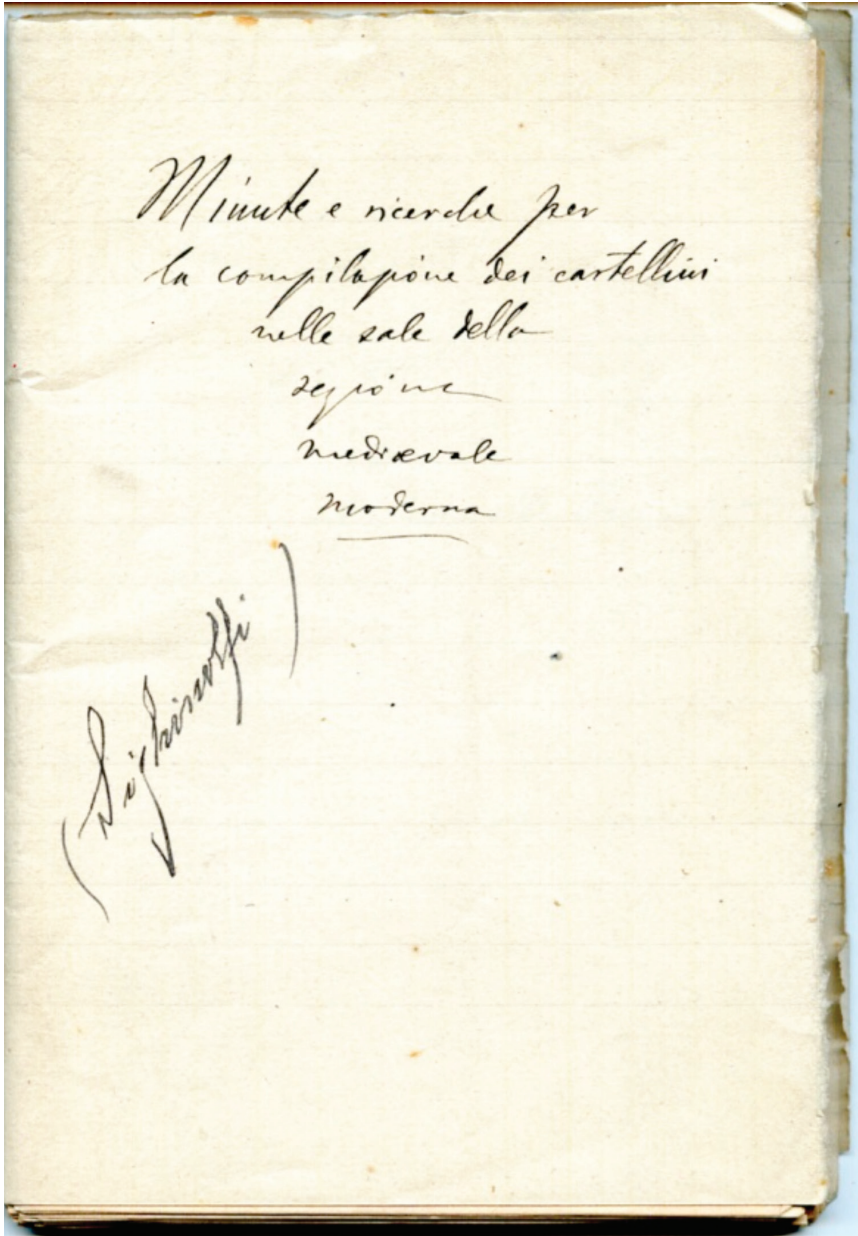 Minute e ricerche per
la compilazione dei cartellini
nelle sale della
sezione
mediœvale
moderna
(Sighinolfi)